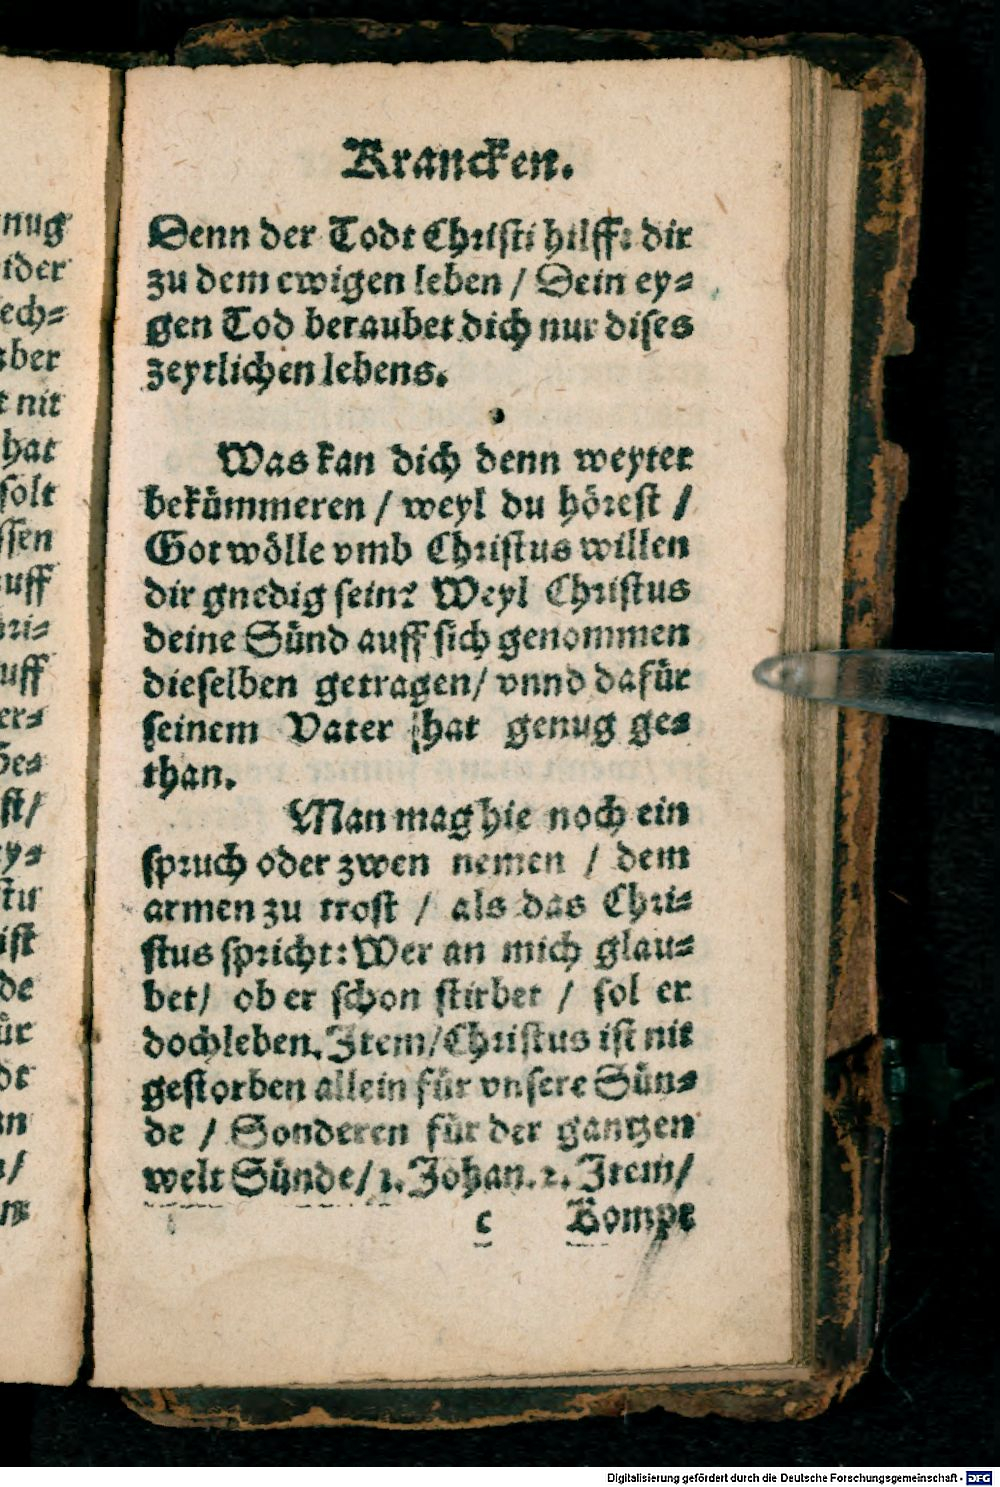 nug
ider
ech-
ber
nit
hat
solt
ssen
uff
bri-
uff
er-
Ge-
st/
ey-
stu
ist
de
ür
dt
an
n/
Krancken.
Denn der Todt Christi hilfft dir
zu dem ewigen leben / Dein ey-
gen Tod beraubet dich nur dises
zeytlichen lebens.
Was kan dich denn weyter
bekümmeren / weyl du hörest /
Got wölle vmb Christus willen
dir gnedig sein? Weyl Christus
deine Sünd auff sich genommen
dieselben getragen/ vnnd dafür
seinem Vater hat genug ge-
than.
Man mag hie noch ein
spruch oder zwen nemen / dem
armen zu trost / als das Chri-
stus spricht: Wer an mich glau-
bet/ ob er schon stirbet / sol er
doch leben. Item/ Christus ist nit
gestorben allein für vnsere Sün-
de / Sonderen für der gantzen
welt Sünde/ 1. Johan. 2. Item/
c Kompt
Digitalisierung gefördert durch die Deutsche Forschungsgemeinschaft - DFG